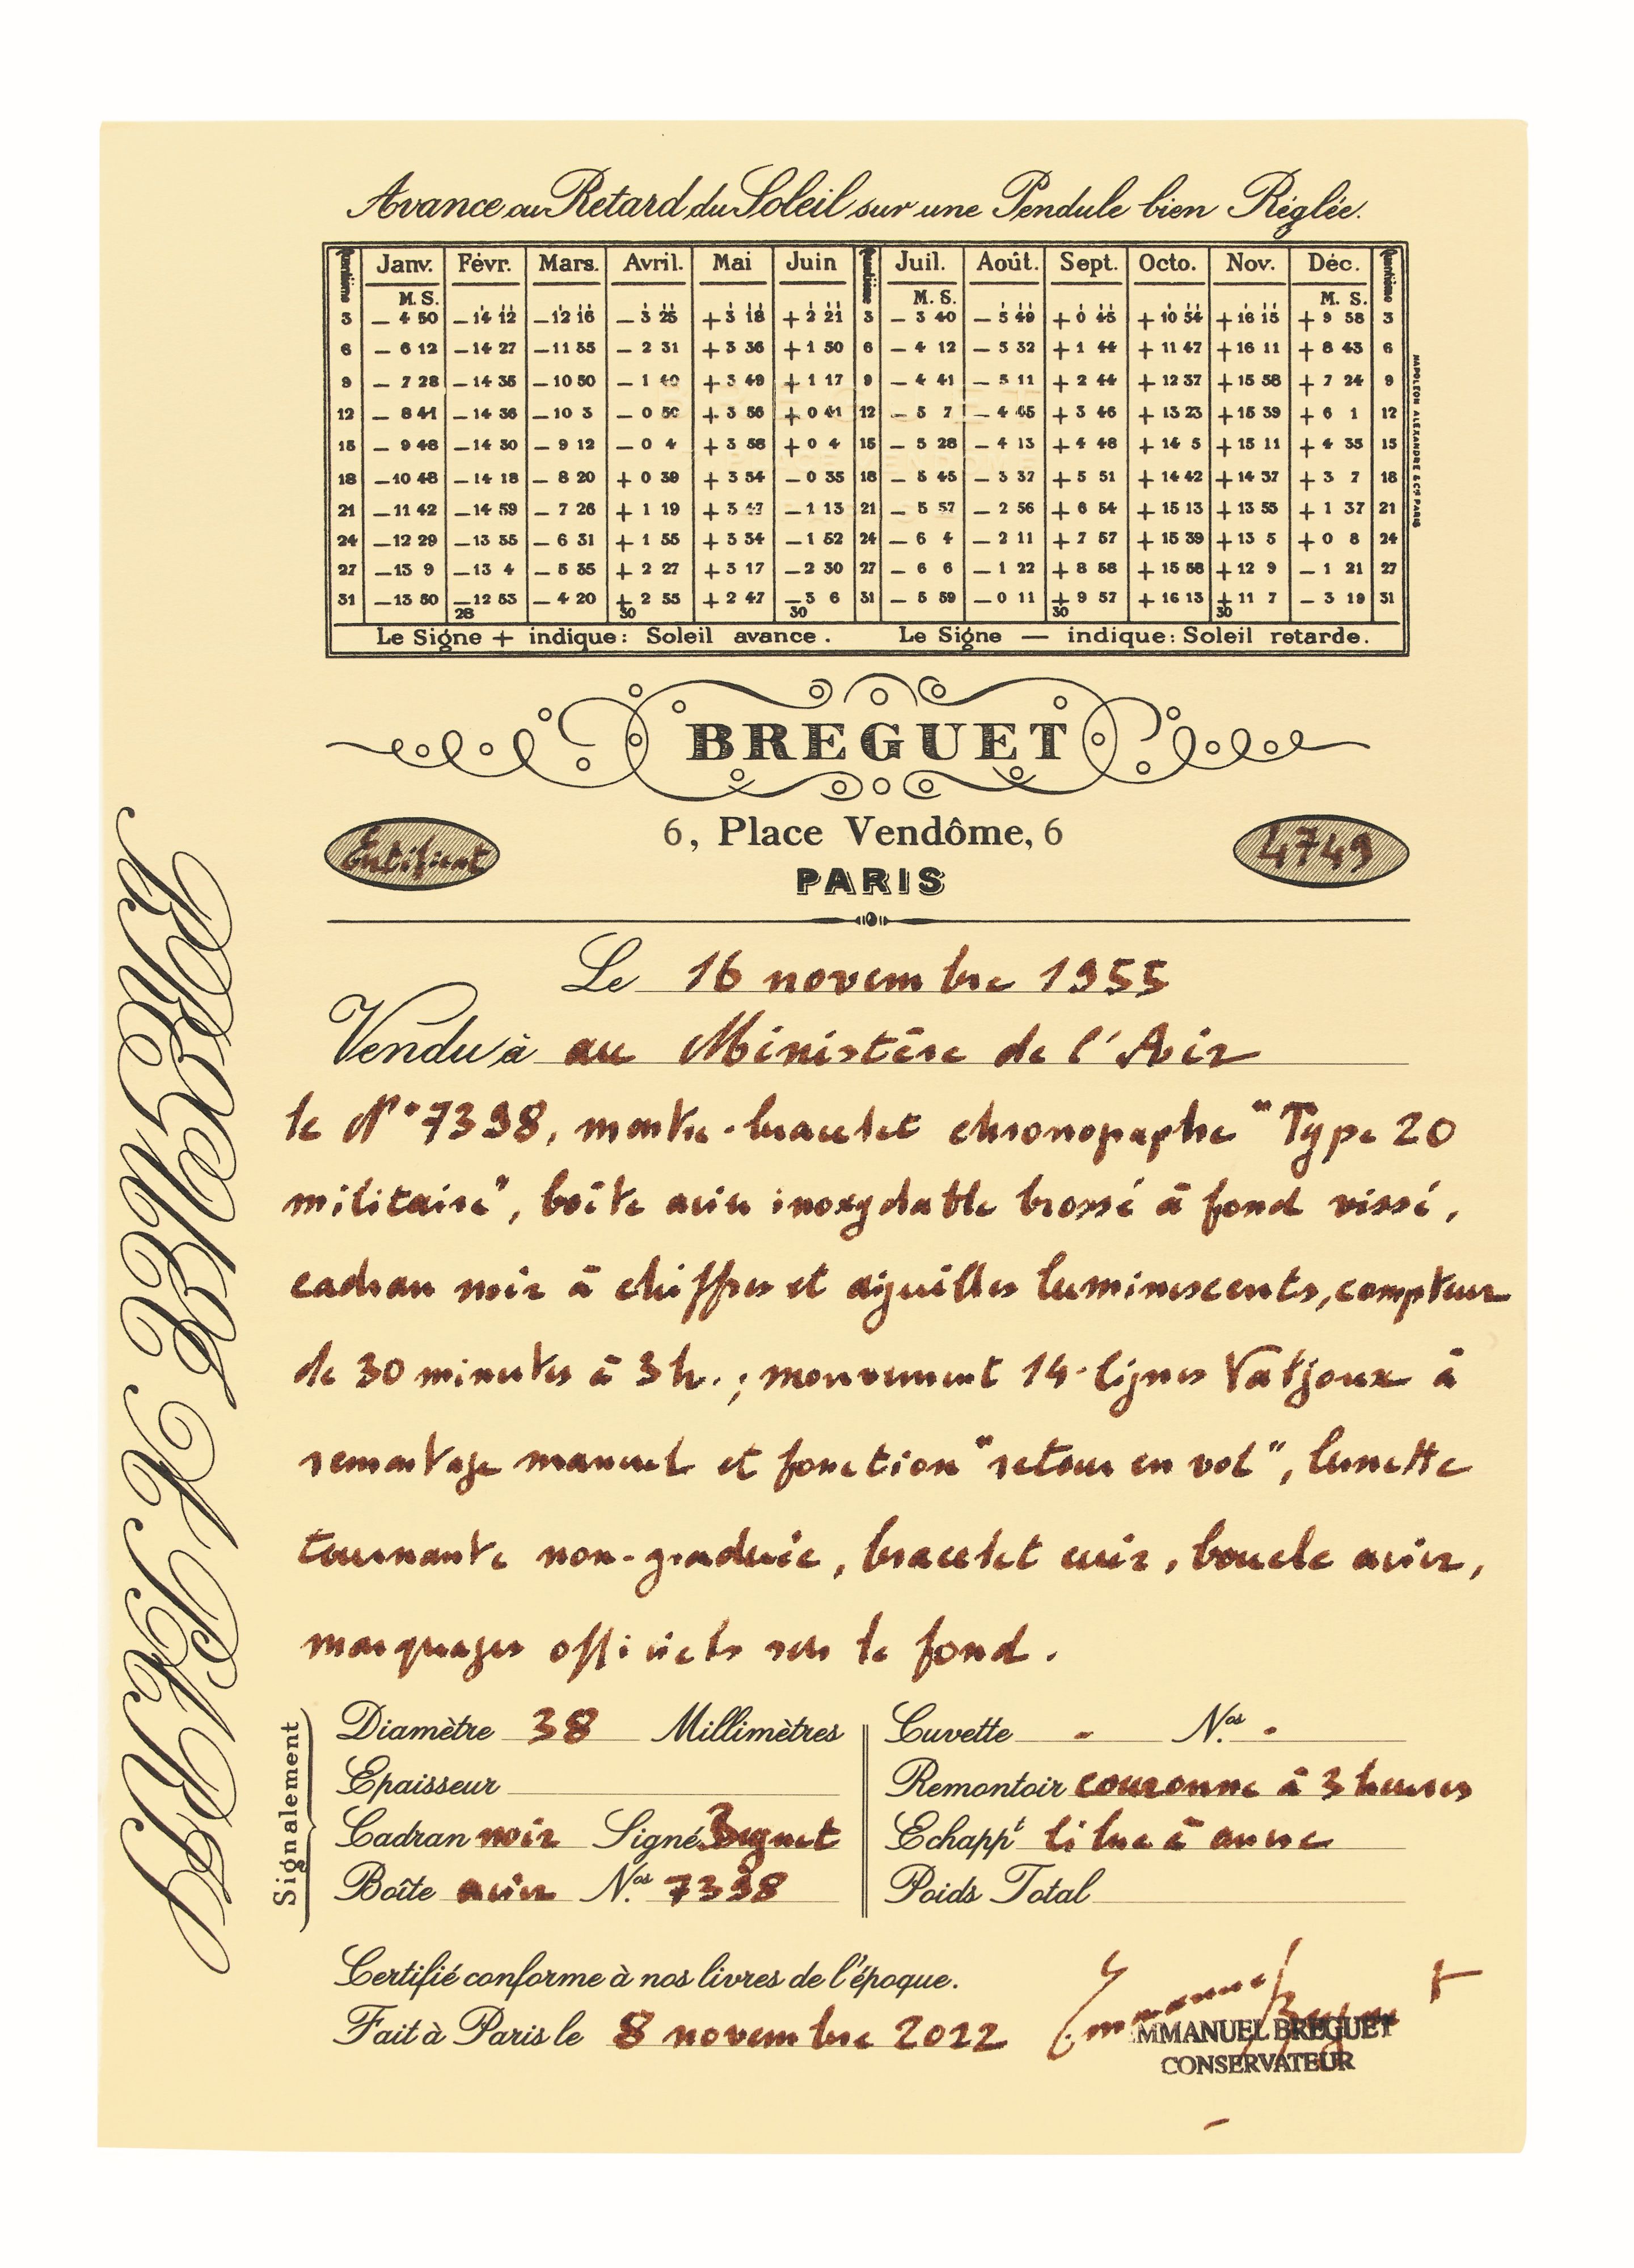 Avance ou Retard du Soleil sur une Pendule bien Réglée.
Quantième Janv. Févr. Mars. Avril. Mai Juin Quantième Juil. Août. Sept. Octo. Nov. Déc. Quantième
M. S. M. S. M. S.
3 — 4 50 — 14 12 — 12 16 — 3 25 + 3 18 + 2 21 3 — 3 40 — 5 49 + 0 45 + 10 54 + 16 15 + 9 58 3
6 — 6 12 — 14 27 — 11 55 — 2 31 + 3 36 + 1 50 6 — 4 12 — 5 32 + 1 44 + 11 47 + 16 11 + 8 43 6
9 — 7 28 — 14 35 — 10 50 — 1 40 + 3 49 + 1 17 9 — 4 41 — 5 11 + 2 44 + 12 37 + 15 58 + 7 24 9
12 — 8 41 — 14 36 — 10 3 — 0 50 + 3 56 + 0 41 12 — 5 7 — 4 45 + 3 46 + 13 23 + 15 39 + 6 1 12
15 — 9 48 — 14 30 — 9 12 — 0 4 + 3 58 + 0 4 15 — 5 28 — 4 13 + 4 48 + 14 5 + 15 11 + 4 35 15
18 — 10 48 — 14 18 — 8 20 + 0 39 + 3 54 — 0 35 18 — 5 45 — 3 37 + 5 51 + 14 42 + 14 37 + 3 7 18
21 — 11 42 — 14 59 — 7 26 + 1 19 + 3 47 — 1 13 21 — 5 57 — 2 56 + 6 54 + 15 13 + 13 55 + 1 37 21
24 — 12 29 — 13 35 — 6 31 + 1 55 + 3 34 — 1 52 24 — 6 4 — 2 11 + 7 57 + 15 39 + 13 5 + 0 8 24
27 — 13 9 — 13 4 — 5 35 + 2 27 + 3 17 — 2 30 27 — 6 6 — 1 22 + 8 58 + 15 58 + 12 9 — 1 21 27
31 — 13 50 — 12 53 — 4 20 + 2 55 + 2 47 — 3 6 31 — 5 59 — 0 11 + 9 57 + 16 13 + 11 7 — 3 19 31
28 30 30 30 30
Le Signe + indique: Soleil avance. Le Signe — indique: Soleil retarde.
NAPOLEON ALEXANDRE & Cie PARIS
BREGUET
6, Place Vendôme, 6
PARIS
Certificat
4749
Le 16 novembre 1955
Vendu à au Ministère de l'Air
le N° 7398, montre-bracelet chronographe "Type 20
militaire", boîte acier inoxydable brossé à fond vissé,
cadran noir à chiffres et aiguilles luminescents, compteur
de 30 minutes à 3 h. ; mouvement 14-lignes Valjoux à
remontage manuel et fonction "retour en vol", lunette
tournante non-graduée, bracelet cuir, boucle acier,
marquages officiels sur le fond.
Signalement
Diamètre 38 Millimètres
Epaisseur
Cadran noir Signé Breguet
Boîte acier Nos. 7398
Cuvette - Nos. -
Remontoir couronne à 3 heures
Echappt libre à ancre
Poids Total
Certifié conforme à nos livres de l'époque.
Fait à Paris le 8 novembre 2022
Emmanuel Breguet
EMMANUEL BREGUET
CONSERVATEUR